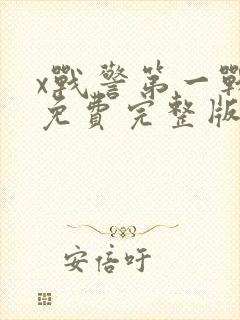 x戰警第一戰
免費完整版
安倍吁